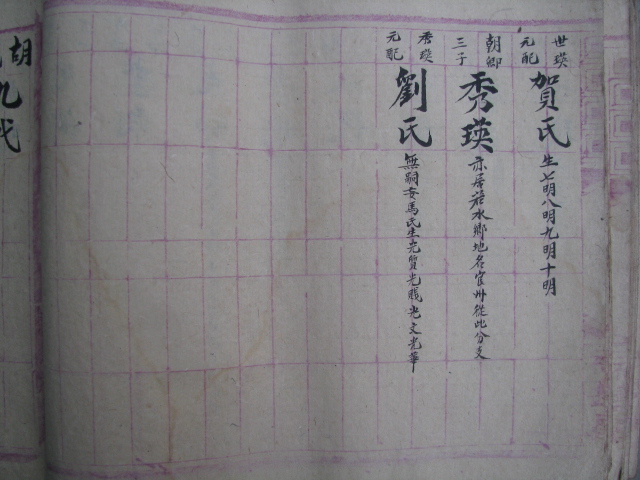 世瑛元配
賀氏 生七明八明九明十明
朝卿三子
秀瑛 亦居若水鄉地名官州從此分支
秀瑛元配
劉氏 無嗣妾馬氏生光質光賤光文光華
胡
九代